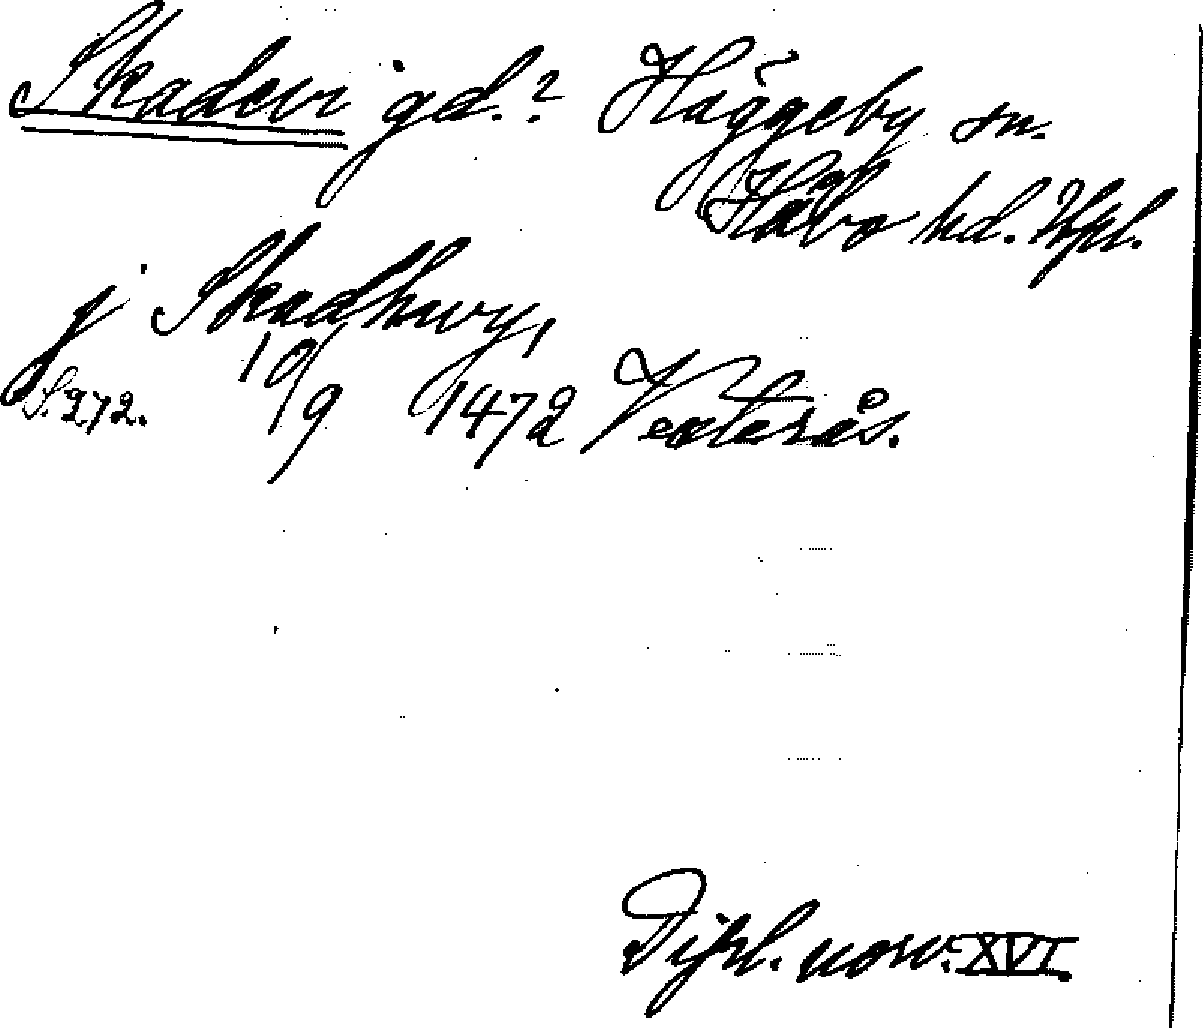 Skadevi gd.? Häggeby sn.
Håbo hd. Upl.
j Skadhwy,
S. 272. 10/9 1472 Vesterås.
Dipl. norv. XVI